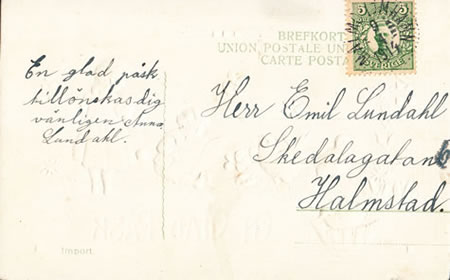 BREFKORT
UNION POSTALE UNI
CARTE POSTA
5 5
SVERIGE
En glad påsk
tillönskas dig
vänligen Anna
Lundahl.
Herr Emil Lundahl
Skedalagatan 6
Halmstad.
Import.